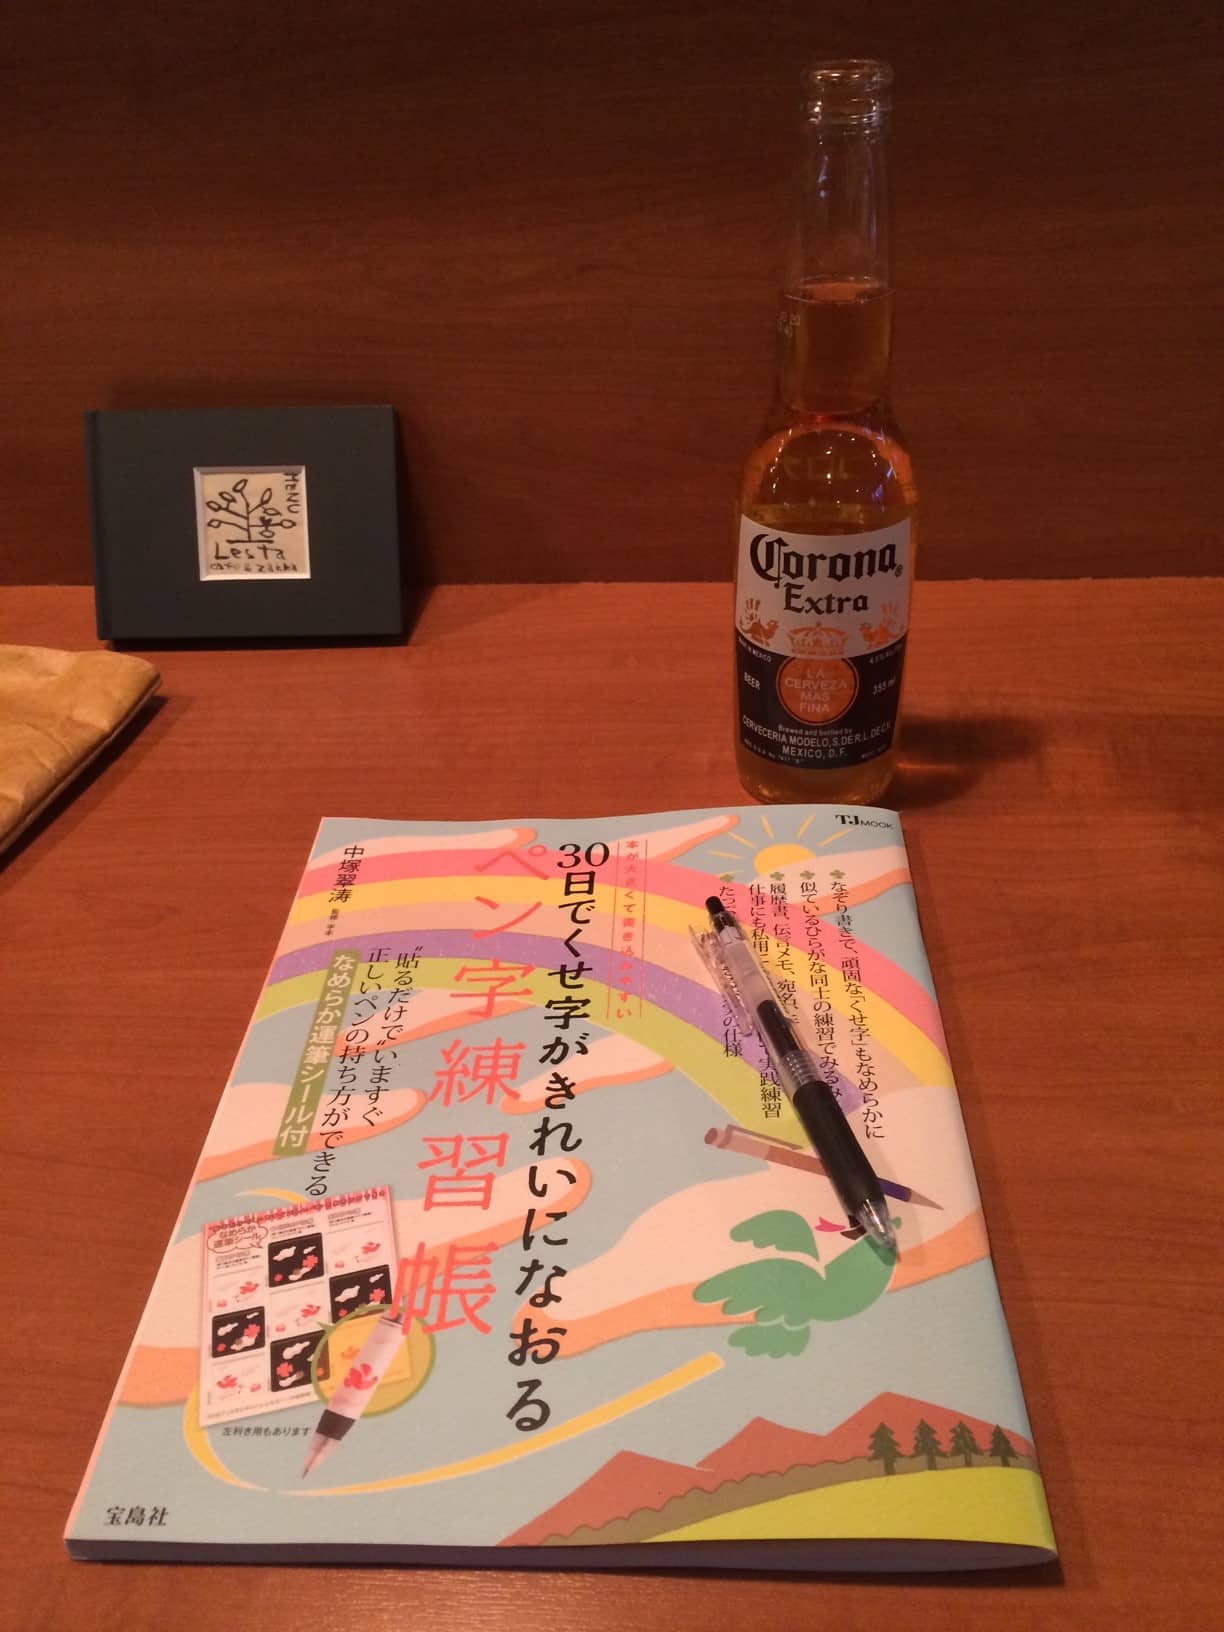 MeNU
Lesta
cafe & zakka
Corona
Extra
MADE IN MEXICO
BEER
LA
CERVEZA
MAS
FINA
355 ml
Brewed and bottled by
CERVECERIA MODELO, S. DE R.L. DE C.V.
MEXICO, D.F.
TJ MOOK
なぞり書きで、頑固な「くせ字」もなめらかに
似ているひらがな同士の練習でみるみ
履歴書、伝言メモ、宛名、
仕事にも私用に
て実践練習
たっ
の仕様
本が大きくて書き込みやすい
30日でくせ字がきれいになおる
ペン字練習帳
中塚翠涛 監修・手本
"貼るだけで"いますぐ
正しいペンの持ち方ができる
なめらか運筆シール付
なめらか
運筆シール
左利き用もあります
宝島社